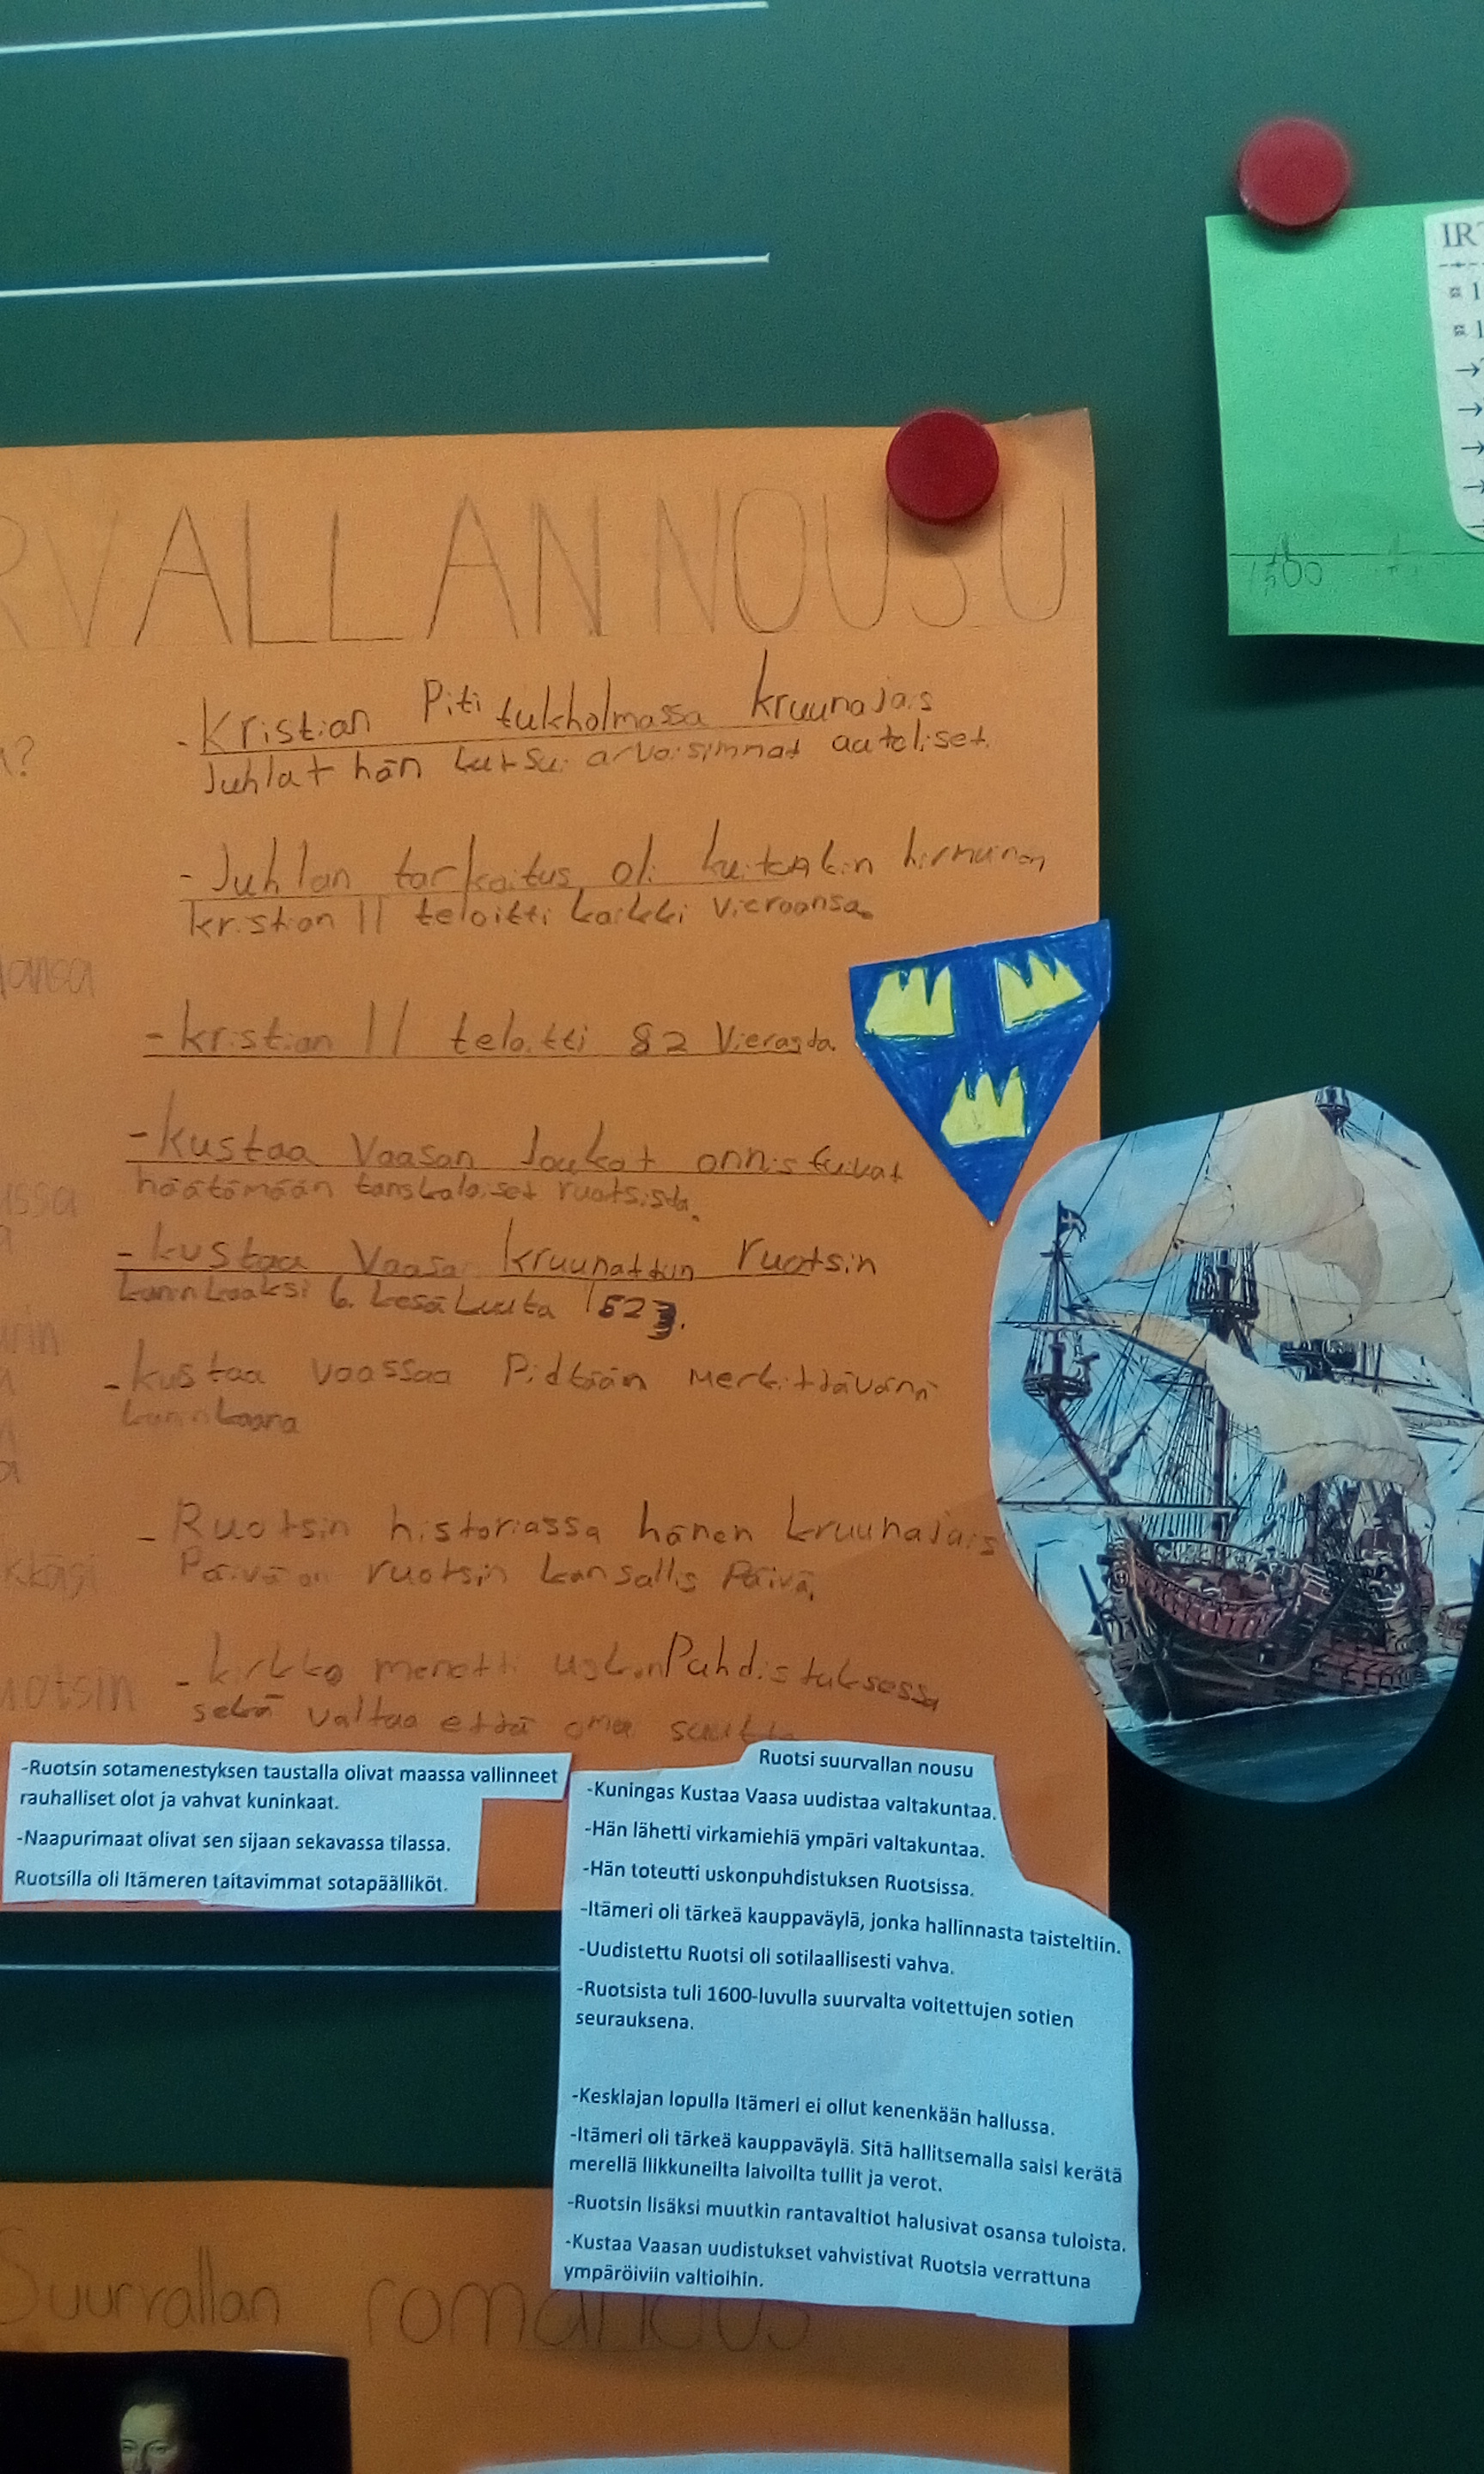 RVALLAN NOUSU
-Kristian Piti tukholmassa kruunajais
Juhlat hän kutsui arvoisimmat aateliset.
- Juhlan tarkoitus oli kuitenkin hirmuinen
kristian II teloitti kaikki vieraansa.
-kristian II teloitti 82 Vierasta.
-kustaa Vaasan Joukot onnistuivat
häätämään tanskalaiset ruotsista.
-kustaa Vaasa kruunattiin ruotsin
kuninkaaksi 6. kesäkuuta 1523.
-kustaa vaassaa Pidtään merkittävänä
kuninkaana
- Ruotsin historiassa hänen kruunajais
Päivä on ruotsin kansallis Päivä,
-kirkko menetti uskonPuhdistuksessa
sekä valtaa että oma
a?
ansa
ussa
urin
uotsin
-Ruotsin sotamenestyksen taustalla olivat maassa vallinneet
rauhalliset olot ja vahvat kuninkaat.
-Naapurimaat olivat sen sijaan sekavassa tilassa.
Ruotsilla oli Itämeren taitavimmat sotapäälliköt.
Ruotsi suurvallan nousu
-Kuningas Kustaa Vaasa uudistaa valtakuntaa.
-Hän lähetti virkamiehiä ympäri valtakuntaa.
-Hän toteutti uskonpuhdistuksen Ruotsissa.
-Itämeri oli tärkeä kauppaväylä, jonka hallinnasta taisteltiin.
-Uudistettu Ruotsi oli sotilaallisesti vahva.
-Ruotsista tuli 1600-luvulla suurvalta voitettujen sotien
seurauksena.
-Keskiajan lopulla Itämeri ei ollut kenenkään hallussa.
-Itämeri oli tärkeä kauppaväylä. Sitä hallitsemalla saisi kerätä
merellä liikkuneilta laivoilta tullit ja verot.
-Ruotsin lisäksi muutkin rantavaltiot halusivat osansa tuloista.
-Kustaa Vaasan uudistukset vahvistivat Ruotsia verrattuna
ympäröiviin valtioihin.
Suurvallan romahdus
IR
1500